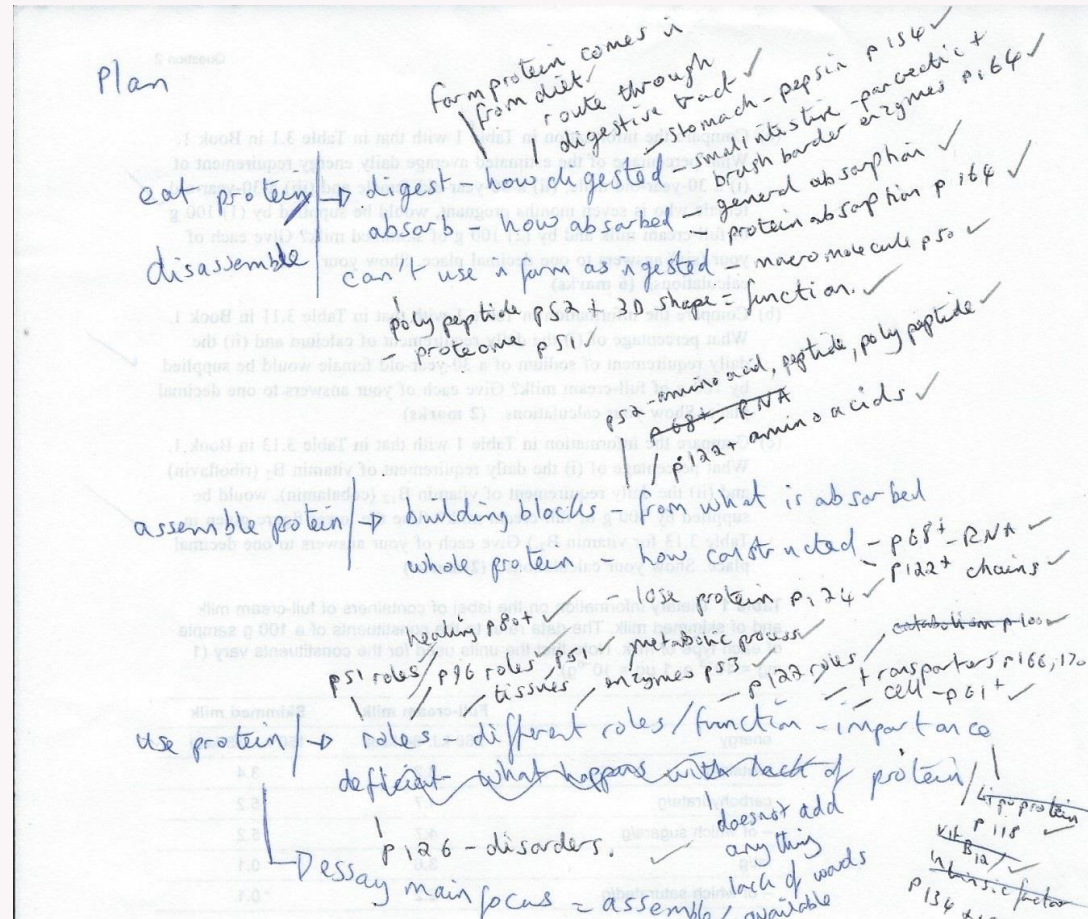 Plan
form protein comes in
from diet ✓
route through
digestive tract ✓
stomach - pepsin p154 ✓
small intestine - pancreatic +
brush border enzymes p164 ✓
eat protein → digest - how digested
general absorption ✓
absorb - how absorbed - protein absorption p164 ✓
disassemble
can't use in form as ingested - macromolecule p50 ✓
polypeptide p52 + 3D shape = function. ✓
- proteome p51 ✓
p52 - amino acid, peptide, polypeptide ✓
p68+ - RNA
p122+ amino acids ✓
assemble protein → building blocks - from what is absorbed
whole protein - how constructed - p68+ - RNA ✓
p122+ chains ✓
- lose protein p124 ✓
healing p80+ ✓
metabolic process ✓
catabolism p100
p51 roles
p96 roles
p51
- tissues
enzymes p53
- p122 roles
- transporters p166, 170
cell - p61+ ✓
use protein → roles - different roles/function - importance
deficient - what happens with lack of protein
p126 - disorders. ✓
does not add
anything
lack of words
available
Lipoprotein
p118 ✓
Vit B12
intrinsic factor
p134
Dessay main focus = assemble/